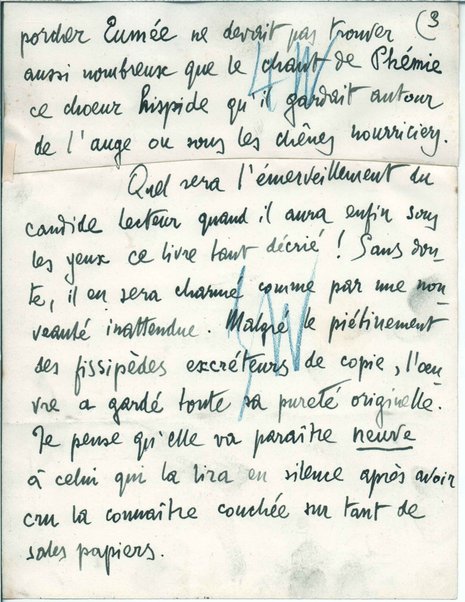 (3
porcher Eumée ne devrait pas trouver
aussi nombreux que le chant de Phémie
ce choeur hispide qu'il gardait autour
de l'auge ou sous les chênes nourriciers.
Quel sera l'émerveillement du
candide lecteur quand il aura enfin sous
les yeux ce livre tant décrié ! Sans dou-
te, il en sera charmé comme par une nou-
veauté inattendue. Malgré le piétinement
des fissipèdes excréteurs de copie, l'oeu-
vre a gardé toute sa pureté originelle.
Je pense qu'elle va paraître neuve
à celui qui la lira en silence après avoir
cru la connaître couchée sur tant de
sales papiers.